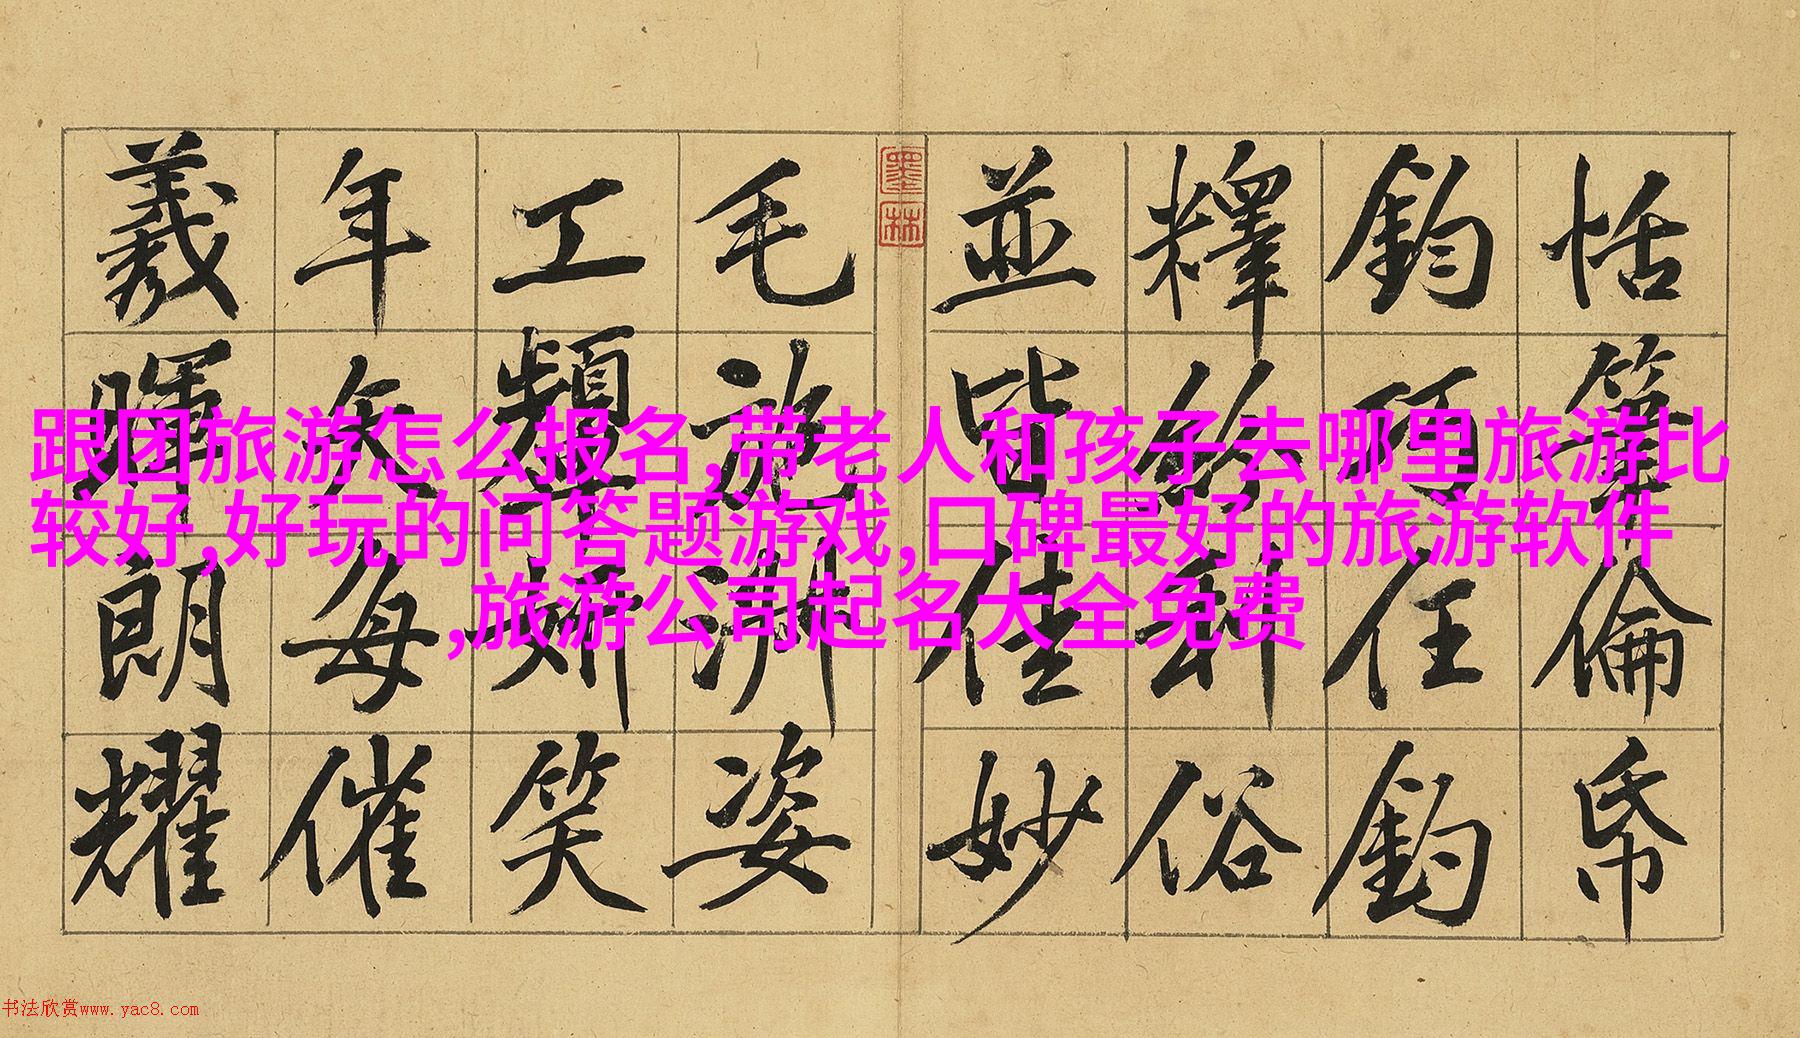 恬筆倫帋
鈞巧任釣
釋紛利俗
並皆佳妙
墨林
毛施淑姿
工顰妍笑
年矢每催
羲暉朗耀
跟团旅游怎么报名,带老人和孩子去哪里旅游比
较好,好玩的问答题游戏,口碑最好的旅游软件
,旅游公司起名大全免费
书法欣赏www.yac8.com